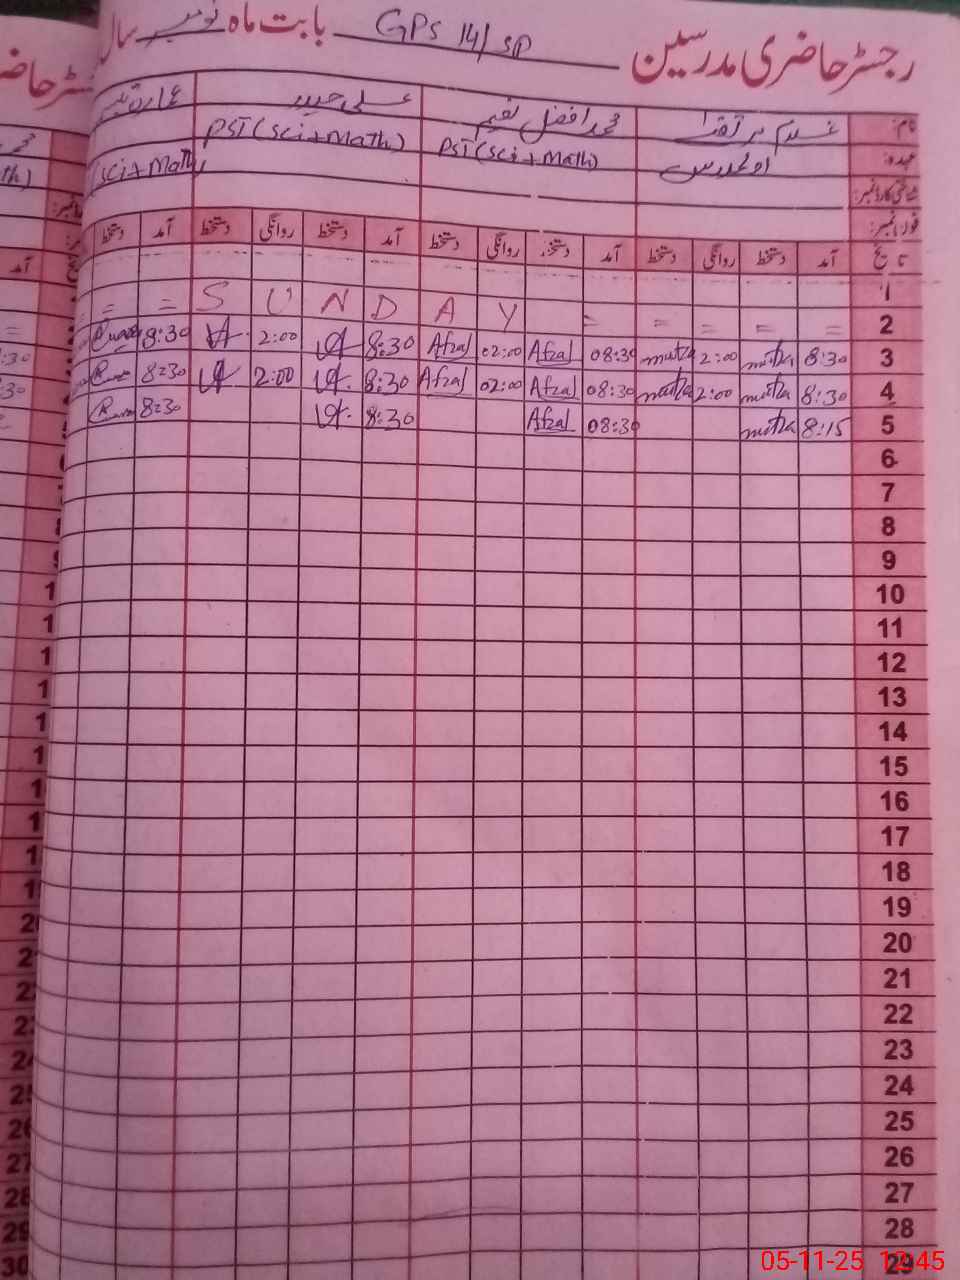 رجسٹر حاضری مدرسین GPS 14/SP بابت ماہ نومبر سال
نام: غلام مرتضیٰ محمد افضل نعیم علی حیدر
عہدہ: اول مدرس PST (Sci+Math) PST (Sci+Math) (Sci+Math)
شناختی کارڈ نمبر:
فون نمبر:
تاریخ آمد دستخط روانگی دستخط آمد دستخط روانگی دستخط آمد دستخط روانگی دستخط آمد دستخط
1
2 = = = = = S U N D A Y = =
3 8:30 mutza 2:00 mutza 08:30 Afzal 02:00 Afzal 8:30 2:00 8:30
4 8:30 mutza 2:00 mutza 08:30 Afzal 02:00 Afzal 8:30 2:00 8:30
5 8:15 mutza 08:30 Afzal 8:30 8:30
6
7
8
9
10
11
12
13
14
15
16
17
18
19
20
21
22
23
24
25
26
27
28
29
05-11-25 12:45